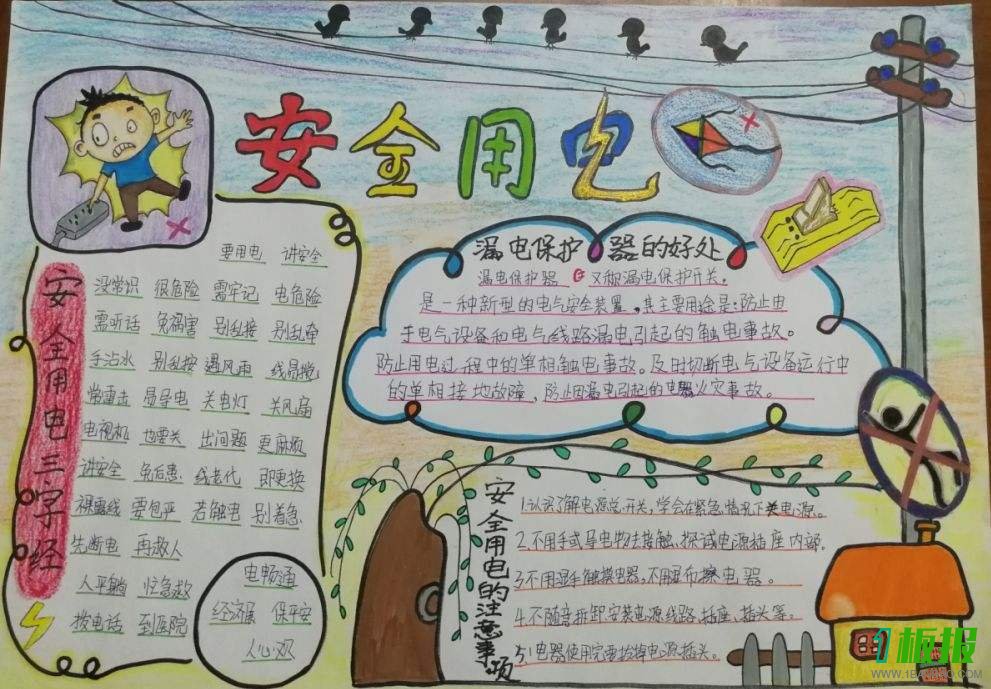 安全用电
安全用电三字经
要用电 讲安全
没常识 很危险 需牢记 电危险
需听话 免祸害 别乱接 别乱牵
手沾水 别乱按 遇风雨 线易搅
常重击 易导电 关电灯 关风扇
电视机 也要关 出问题 更麻烦
讲安全 免后患 线老代 即更换
裸露线 要包严 若触电 别着急
先断电 再救人
人平躺 忙急救
拨电话 到医院
电畅通
经济展 保平安
人心欢
漏电保护器的好处
漏电保护器 又称漏电保护开关。
是一种新型的电气安全装置,其主要用途是:防止由
于电气设备和电气线路漏电引起的触电事故。
防止用电过程中的单相触电事故。及时切断电气设备运行中
的单相接地故障,防止因漏电引起的电器火灾事故。
安全用电的注意事项
1.认识了解电源总开关,学会在紧急情况下关电源。
2.不用手或导电物去接触、探试电源插座内部。
3.不用湿手触摸电器,不用湿布擦电器。
4.不随意拆卸、安装电源线路、插座、插头等。
5.电器使用完要拔掉电源插头。
1板报
WWW.1BANBAO.COM